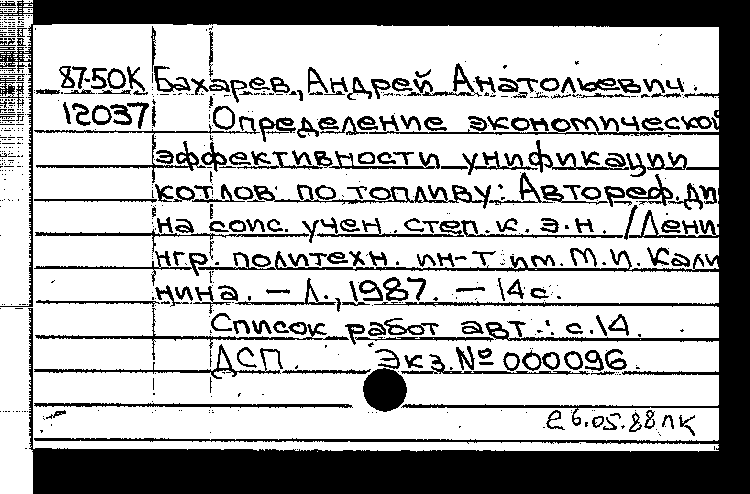 87-50К Бахарев, Андрей Анатольевич.
12037 Определение экономической
эффективности унификации
котлов по топливу: Автореф. ди
на соис. учен. степ. к. э. н. /Лени
нгр. политехн. ин-т им. М. И. Кали
нина. — Л., 1987. — 14 с.
Список работ авт.: с. 14.
ДСП. Экз. № 000096.
26.05.88 ЛК